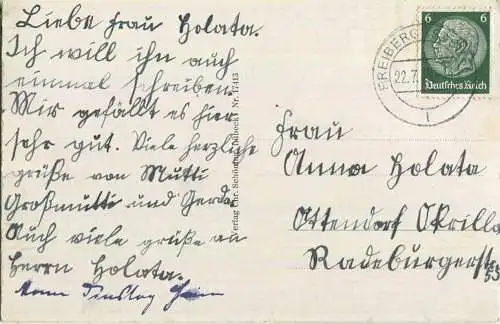 Liebe Frau Holata.
Ich will ihn auch
einmal schreiben.
Mir gefällt es hier
sehr gut. Viele herzliche
grüße von Mutti
Großmutti und Gerda
Auch viele grüße an
Herrn Holata.
Verlag Chr. Schöning, Lübeck / Nr. 17413
FREIBERG
22.7.
6 6
Deutsches Reich
Frau
Anna Holata
Ottendorf Okrilla
Radeburgerstr
53